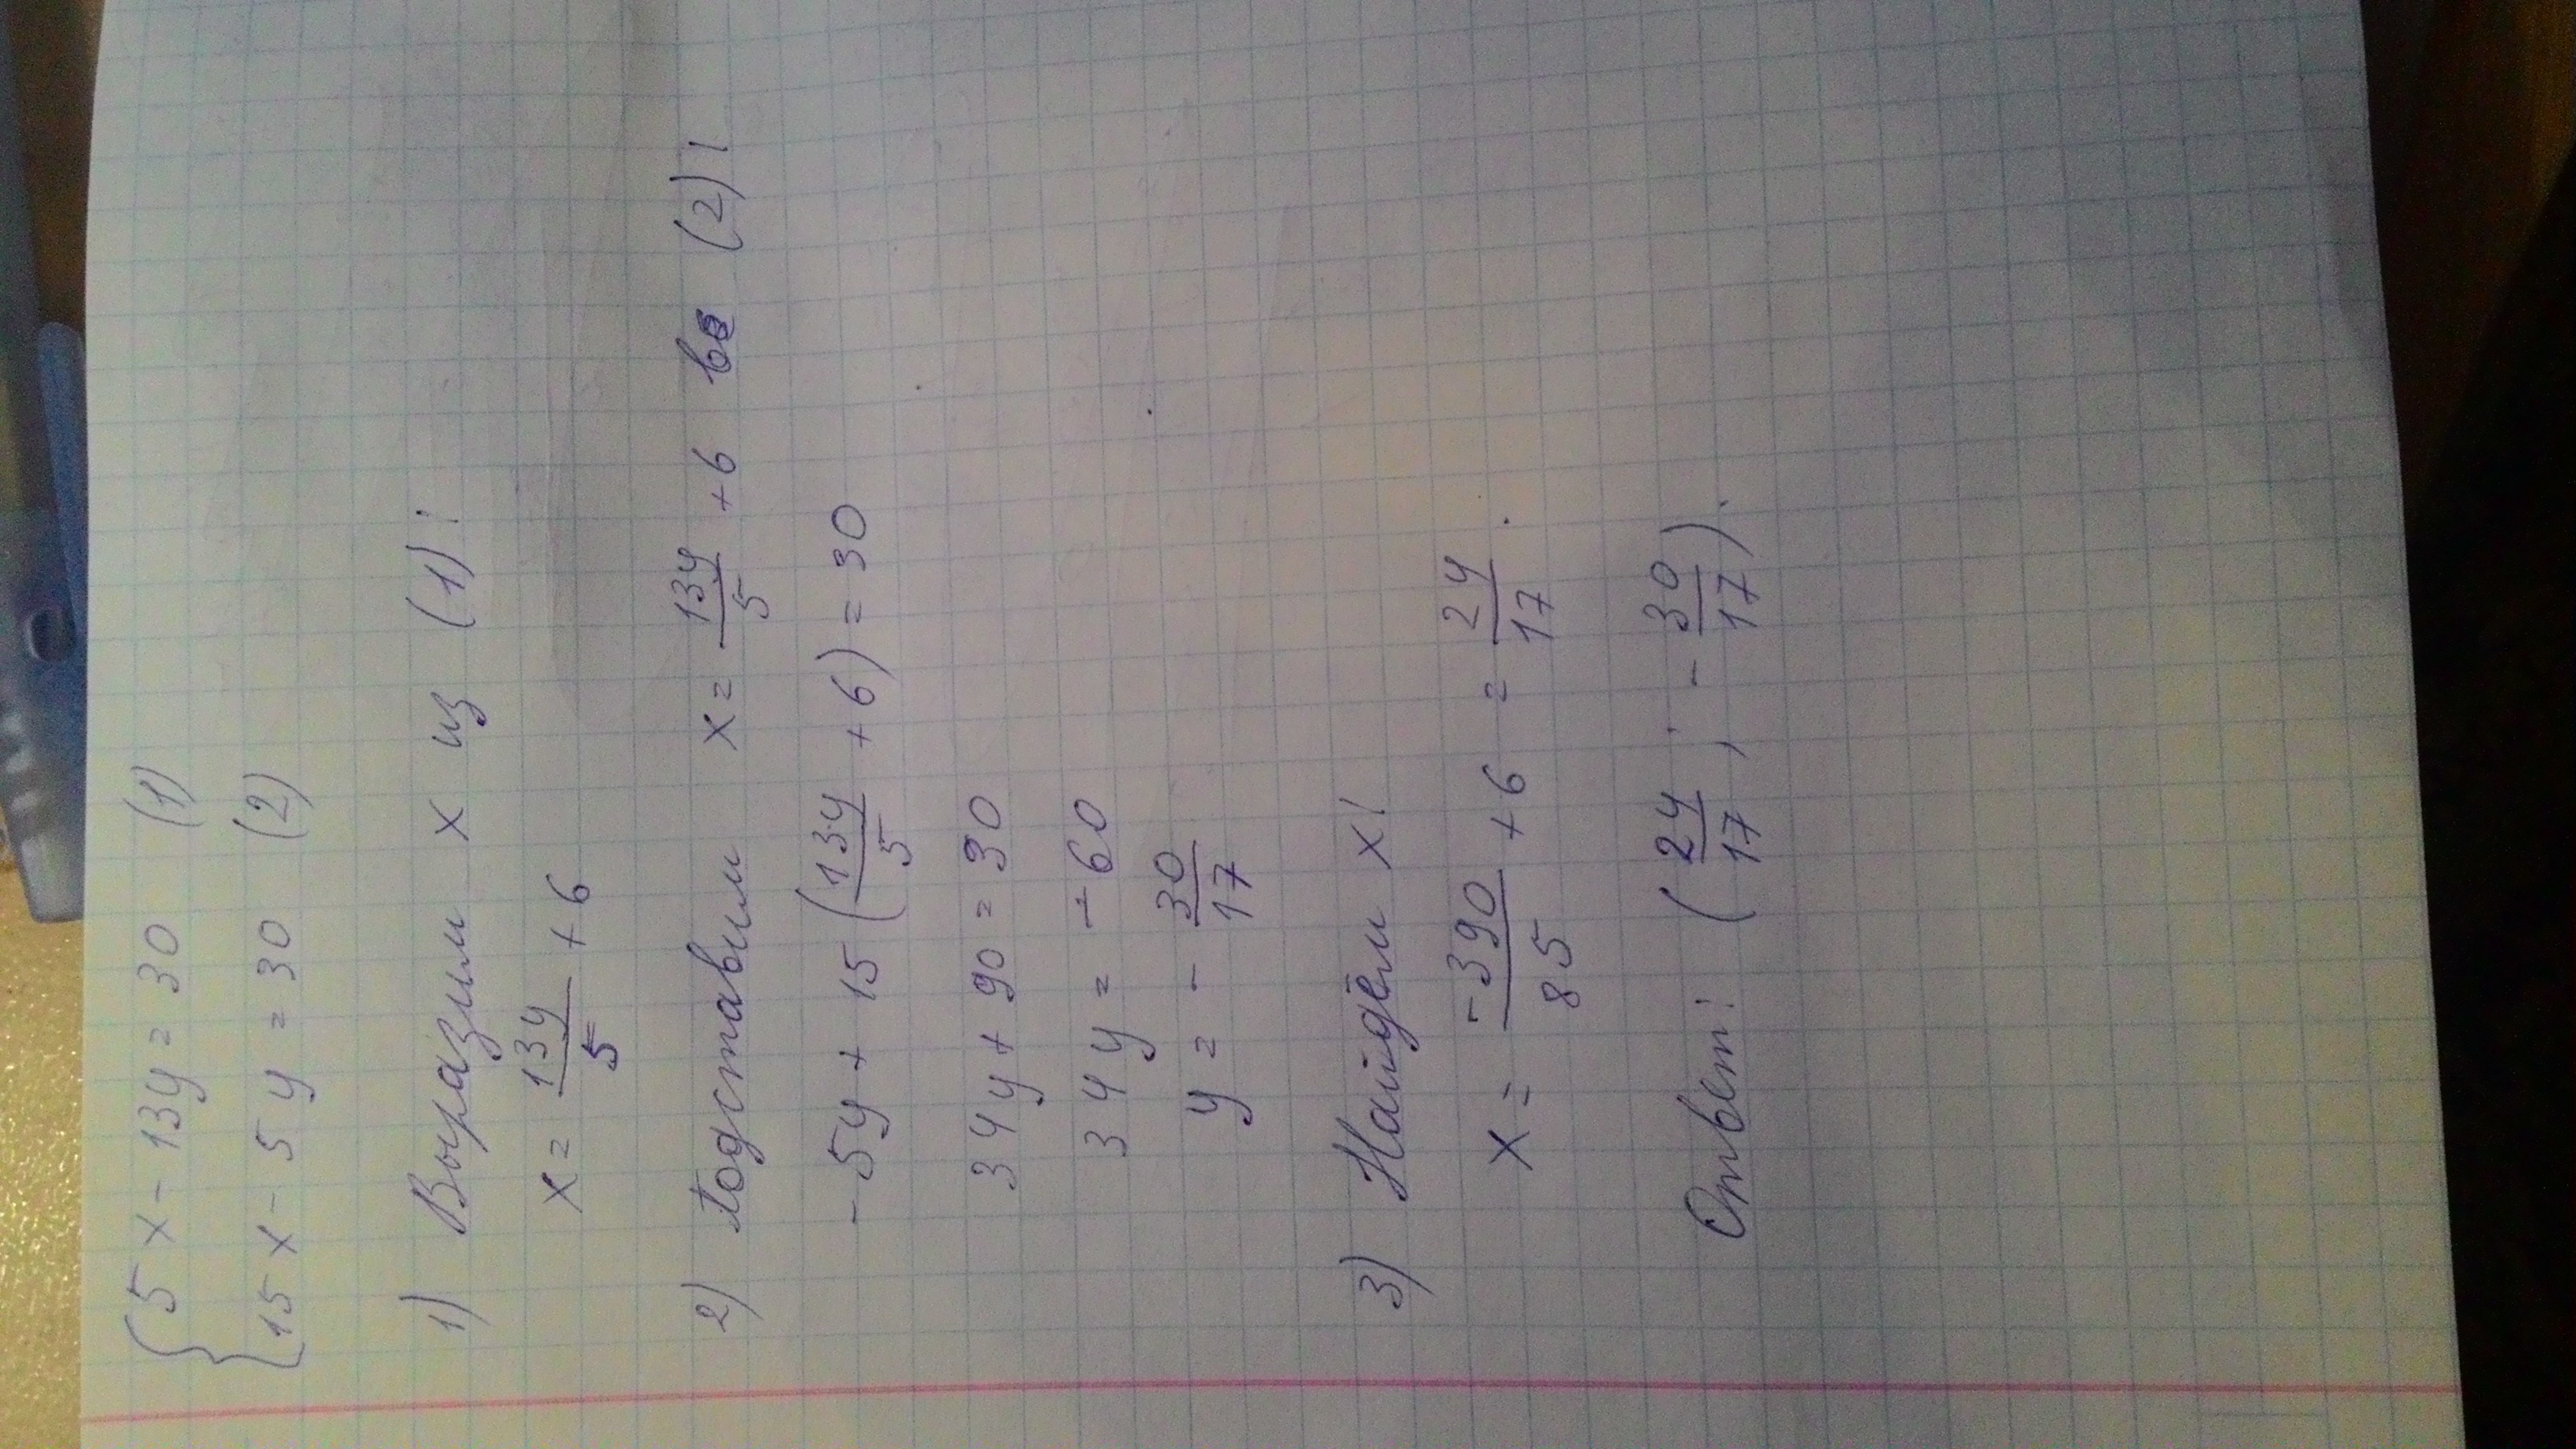 {5x - 13y = 30 (1)
{15x - 5y = 30 (2)
1) Выразим x из (1):
x = 13y/5 + 6
2) Подставим x = 13y/5 + 6 во (2):
-5y + 15(13y/5 + 6) = 30
34y + 90 = 30
34y = -60
y = - 30/17
3) Найдём x:
x = -390/85 + 6 = 24/17.
Ответ: (24/17; - 30/17).